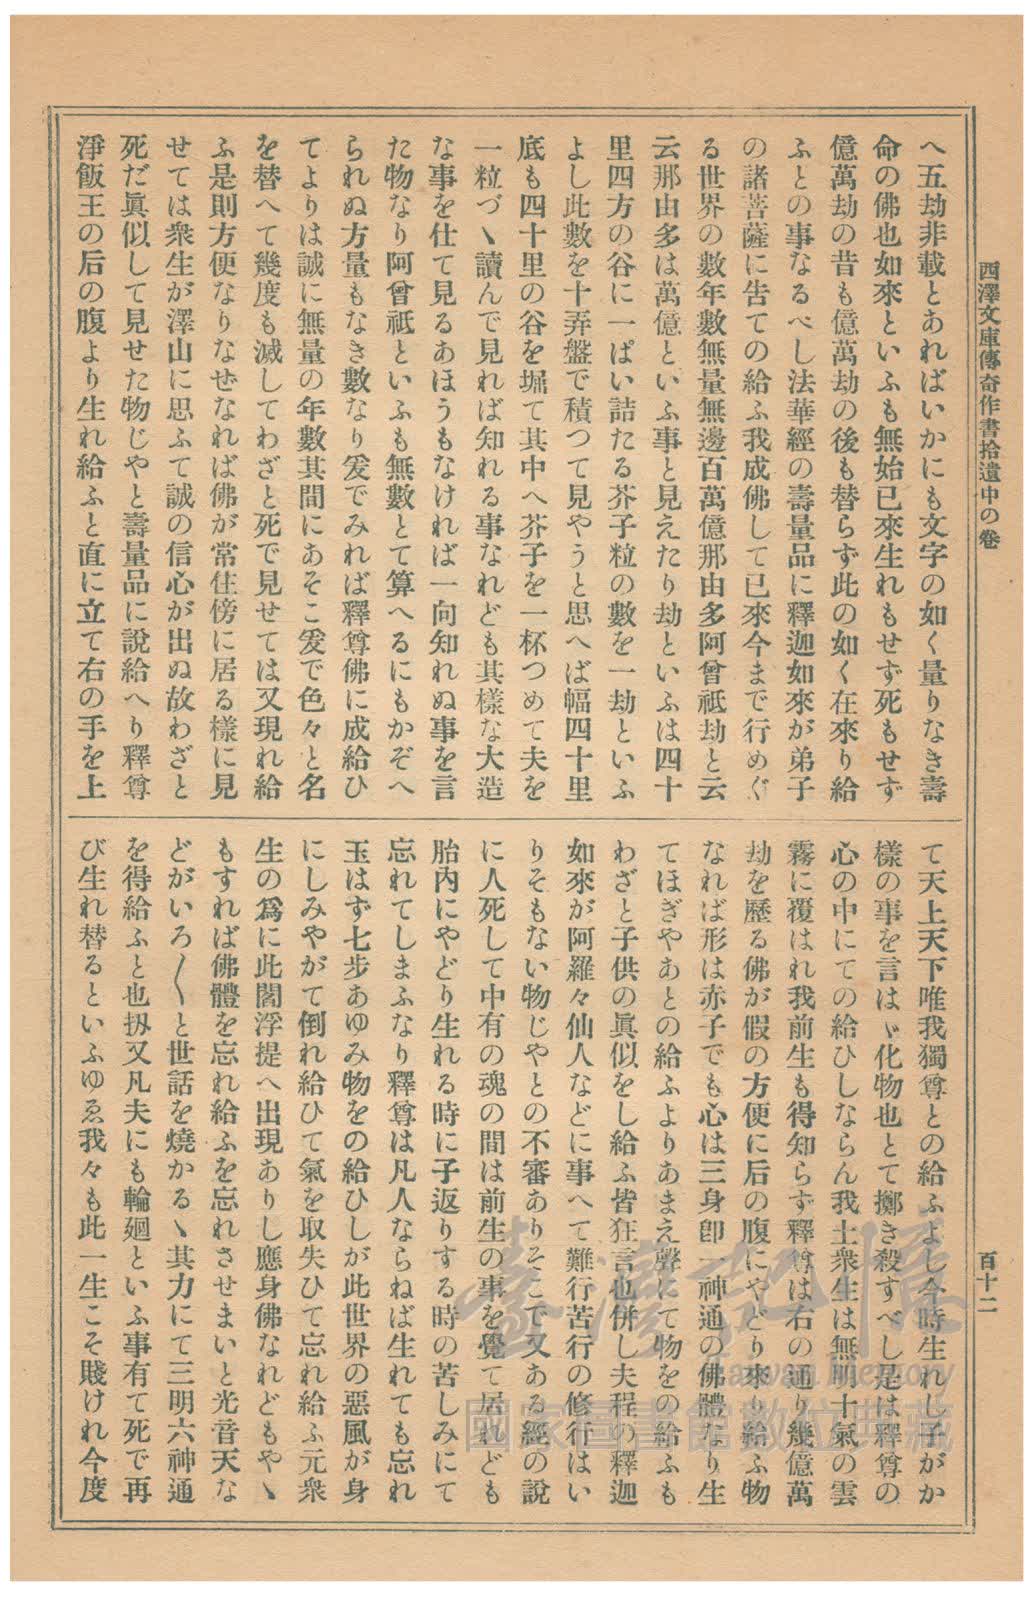 西澤文庫傳奇作書拾遺中の卷
百十二
へ五劫非載とあればいかにも文字の如く量りなき壽
命の佛也如來といふも無始已來生れもせず死もせず
億萬劫の昔も億萬劫の後も替らず此の如く在來り給
ふとの事なるべし法華經の壽量品に釋迦如來が弟子
の諸菩薩に告ての給ふ我成佛して已來今まで行めぐ
る世界の數年數無量無邊百萬億那由多阿曾祇劫と云
云那由多は萬億といふ事と見えたり劫といふは四十
里四方の谷に一ぱい詰たる芥子粒の數を一劫といふ
よし此數を十弄盤で積つて見やうと思へば幅四十里
底も四十里の谷を堀て其中へ芥子を一杯つめて夫を
一粒づゝ讀んで見れば知れる事なれども其樣な大造
な事を仕て見るあほうもなければ一向知れぬ事を言
た物なり阿曾祇といふも無數とて算へるにもかぞへ
られぬ方量もなき數なり爰でみれば釋尊佛に成給ひ
てよりは誠に無量の年數其間にあそこ爰で色々と名
を替へて幾度も滅してわざと死で見せては又現れ給
ふ是則方便なりなぜなれば佛が常住傍に居る樣に見
せては衆生が澤山に思ふて誠の信心が出ぬ故わざと
死だ眞似して見せた物じやと壽量品に說給へり釋尊
淨飯王の后の腹より生れ給ふと直に立て右の手を上
て天上天下唯我獨尊との給ふよし今時生れし子がか
樣の事を言はゞ化物也とて擲き殺すべし是は釋尊の
心の中にての給ひしならん我土衆生は無明十氣の雲
霧に覆はれ我前生も得知らず釋尊は右の通り幾億萬
劫を歷る佛が假の方便に后の腹にやどり來り給ふ物
なれば形は赤子でも心は三身卽一神通の佛體なり生
てほぎやあとの給ふよりあまえ聲にて物をの給ふも
わざと子供の眞似をし給ふ皆狂言也併し夫程の釋迦
如來が阿羅々仙人などに事へて難行苦行の修行はい
りそもない物じやとの不審ありそこで又ある經の說
に人死して中有の魂の間は前生の事を覺て居れども
胎內にやどり生れる時に子返りする時の苦しみにて
忘れてしまふなり釋尊は凡人ならねば生れても忘れ
玉はず七步あゆみ物をの給ひしが此世界の惡風が身
にしみやがて倒れ給ひて氣を取失ひて忘れ給ふ元衆
生の爲に此閻浮提へ出現ありし應身佛なれどもやゝ
もすれば佛體を忘れ給ふを忘れさせまいと光音天な
どがいろ〱と世話を燒かるゝ其力にて三明六神通
を得給ふと也扨又凡夫にも輪廻といふ事有て死で再
び生れ替るといふゆゑ我々も此一生こそ賤けれ今度
臺灣記憶
Taiwan Memory
國家圖書館數位典藏